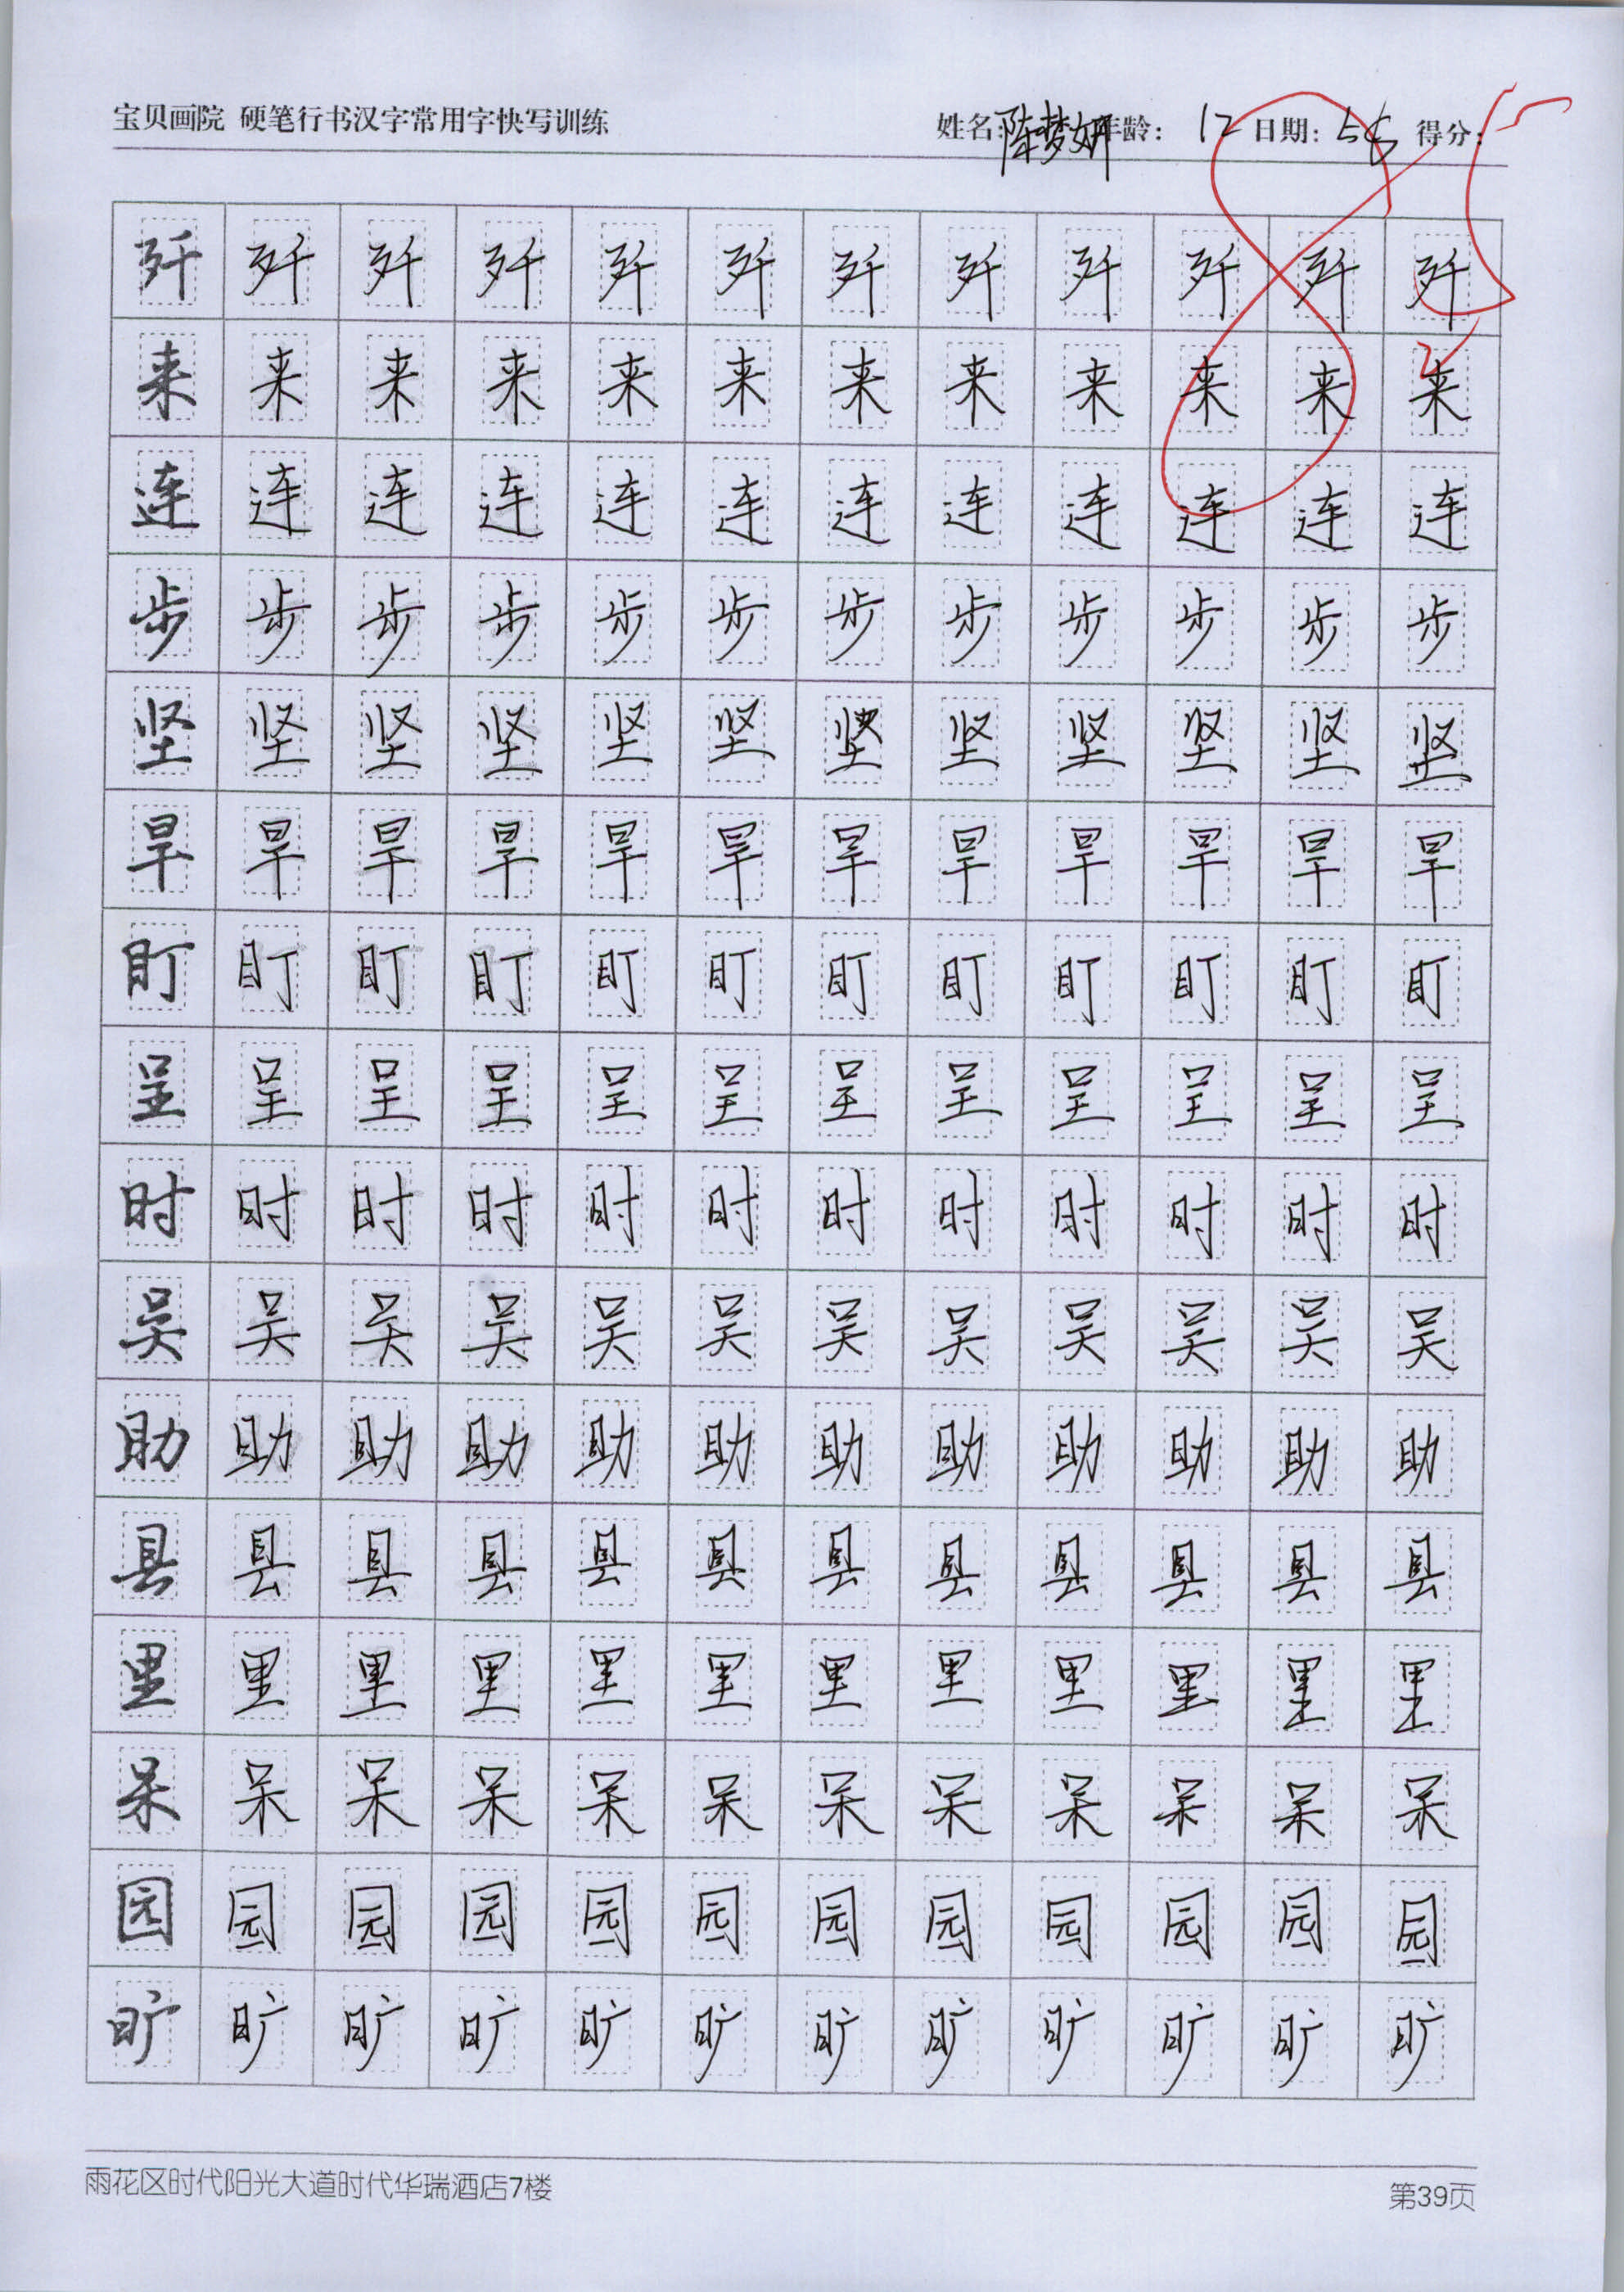 宝贝画院 硬笔行书汉字常用字快写训练 姓名:陈梦妍 年龄: 12 日期: 得分: 85
歼 歼 歼 歼 歼 歼 歼 歼 歼 歼 歼 歼
来 来 来 来 来 来 来 来 来 来 来 来
连 连 连 连 连 连 连 连 连 连 连 连
步 步 步 步 步 步 步 步 步 步 步 步
坚 坚 坚 坚 坚 坚 坚 坚 坚 坚 坚 坚
旱 旱 旱 旱 旱 旱 旱 旱 旱 旱 旱 旱
盯 盯 盯 盯 盯 盯 盯 盯 盯 盯 盯 盯
呈 呈 呈 呈 呈 呈 呈 呈 呈 呈 呈 呈
时 时 时 时 时 时 时 时 时 时 时 时
吴 吴 吴 吴 吴 吴 吴 吴 吴 吴 吴 吴
助 助 助 助 助 助 助 助 助 助 助 助
县 县 县 县 县 县 县 县 县 县 县 县
里 里 里 里 里 里 里 里 里 里 里 里
呆 呆 呆 呆 呆 呆 呆 呆 呆 呆 呆 呆
园 园 园 园 园 园 园 园 园 园 园 园
旷 旷 旷 旷 旷 旷 旷 旷 旷 旷 旷 旷
雨花区时代阳光大道时代华瑞酒店7楼 第39页